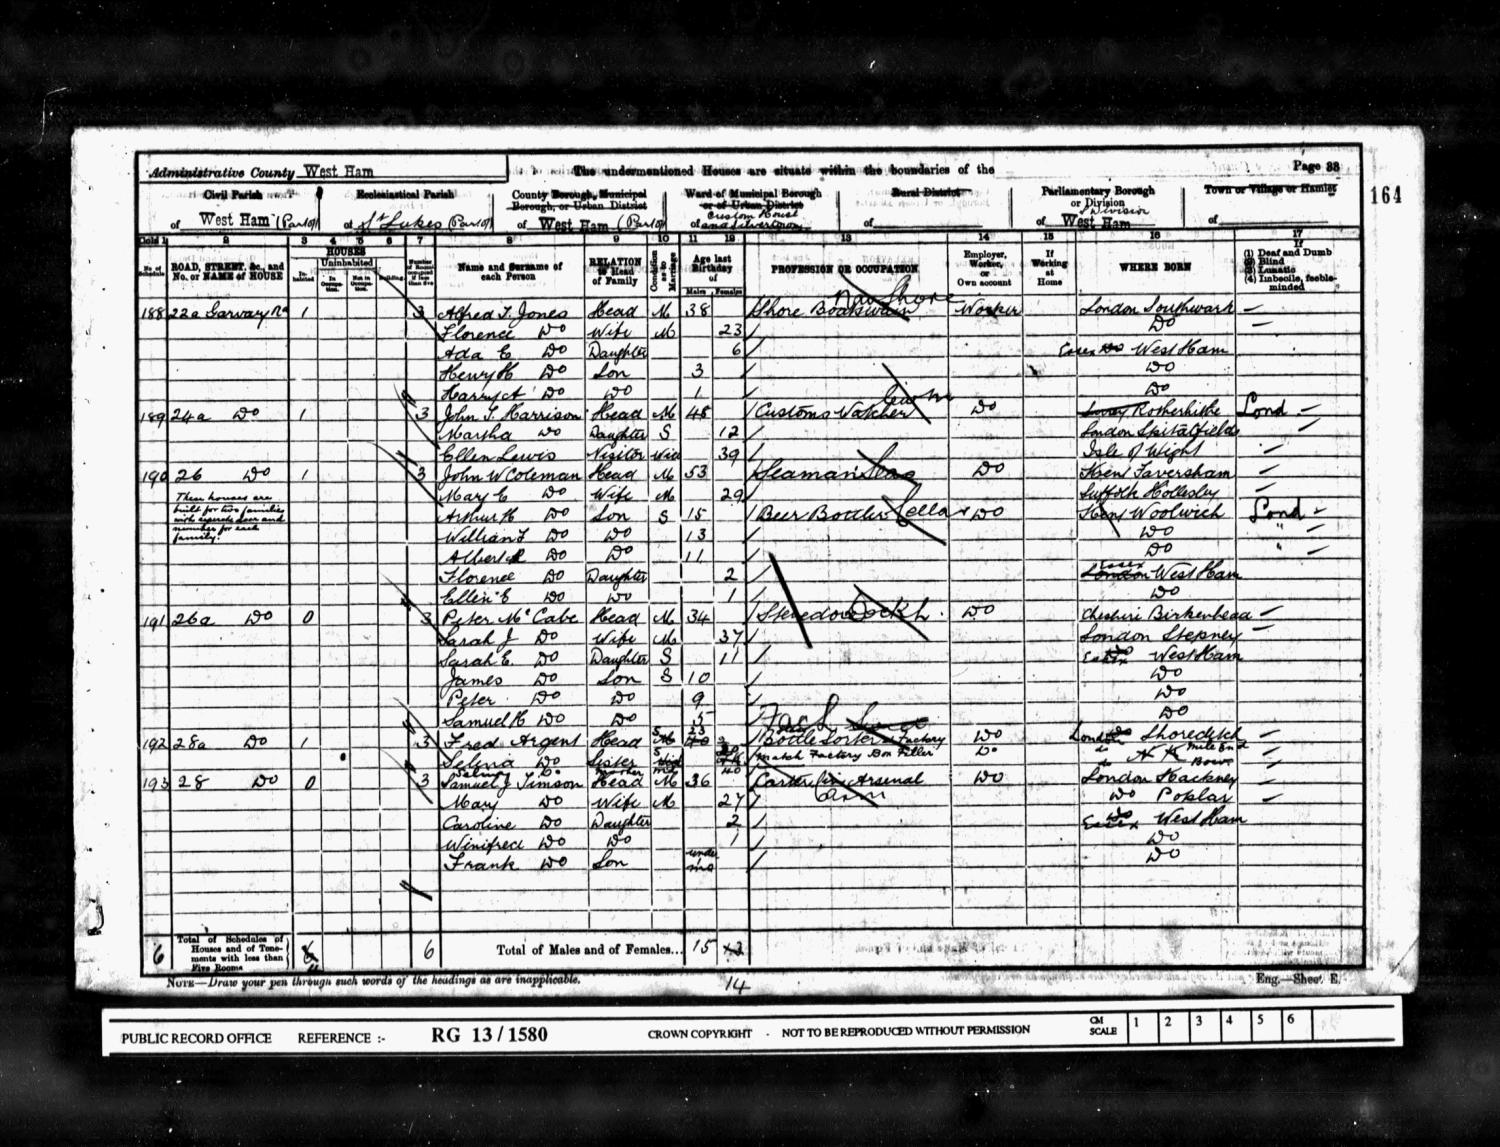 Administrative County West Ham
The undermentioned Houses are situate within the boundaries of the
Page 33
164
Civil Parish
of West Ham (Part of)
Ecclesiastical Parish
of St Lukes (Part of)
County Borough, Municipal Borough, or Urban District
of West Ham (Part of)
Ward of Municipal Borough or of Urban District
of Custom House and Silvertown
Rural District
of
Parliamentary Borough or Division
of West Ham S Division
Town or Village or Hamlet
of
Cols 1 2 3 4 5 6 7 8 9 10 11 12 13 14 15 16 17
No. of Schedule
ROAD, STREET, &c., and No. or NAME of HOUSE
HOUSES
Inhabited
Uninhabited
In Occupation.
Not in Occupation.
Building.
Number of Rooms occupied if less than five
Name and Surname of each Person
RELATION to Head of Family
Condition as to Marriage
Age last Birthday of
Males
Females
PROFESSION OR OCCUPATION
Employer, Worker, or Own account
If Working at Home
WHERE BORN
If
(1) Deaf and Dumb
(2) Blind
(3) Lunatic
(4) Imbecile, feeble-minded
188 22a Garvary Rd 1 3 Alfred T. Jones Head M 38 Shore Boatswain Nav Shore Worker London Southwark
Florence Do Wife M 23 Do
Ada E Do Daughter 6 Essex Do West Ham
Henry H Do Son 3 Do
Harry A Do Do 1 Do
189 24a Do 1 3 John T. Harrison Head M 48 Customs Watcher Do Surrey Rotherhithe Lond
Martha Do Daughter S 12 London Spitalfields
Ellen Lewis Visitor Wid 39 Isle of Wight
190 26 Do 1 3 John W Coleman Head M 53 Seaman Sea Do Kent Faversham
Mary E Do Wife M 29 Suffolk Hollesley
These houses are built for two families with separate door and number for each family.
Arthur H Do Son S 15 Beer Bottler Cellar Do Kent Woolwich Lond
William T Do Do 13 Do "
Albert R Do Do 11 Do "
Florence Do Daughter 2 London Essex West Ham
Ellen E Do Do 1 Do
191 26a Do 0 3 Peter McCabe Head M 34 Stevedore Dock L. Do Cheshire Birkenhead
Sarah J Do Wife M 37 London Stepney
Sarah E. Do Daughter S 11 Essex Do West Ham
James Do Son S 10 Do
Peter Do Do 9 Do
Samuel H Do Do 5 Do
192 28a Do 1 3 Fred Argent Head S 23 Bottle Sorter Factory Fac L Do London Do Shoreditch
Selina Do Sister S 20 Match Factory Box Filler Do do Mile End
Selina Do Mother Wid 40 do Bow
193 28 Do 0 3 Samuel J Timson Head M 36 Carter Arsenal Do London Hackney
Mary Do Wife M 27 Do Poplar
Caroline Do Daughter 2 Essex Do West Ham
Winifred Do Do 1 Do
Frank Do Son under mo Do
6 Total of Schedules of Houses and of Tenements with less than Five Rooms 6 6 Total of Males and of Females... 15 14
NOTE—Draw your pen through such words of the headings as are inapplicable.
Eng.—Sheet E.
PUBLIC RECORD OFFICE REFERENCE :- RG 13 / 1580 CROWN COPYRIGHT - NOT TO BE REPRODUCED WITHOUT PERMISSION CM SCALE 1 2 3 4 5 6